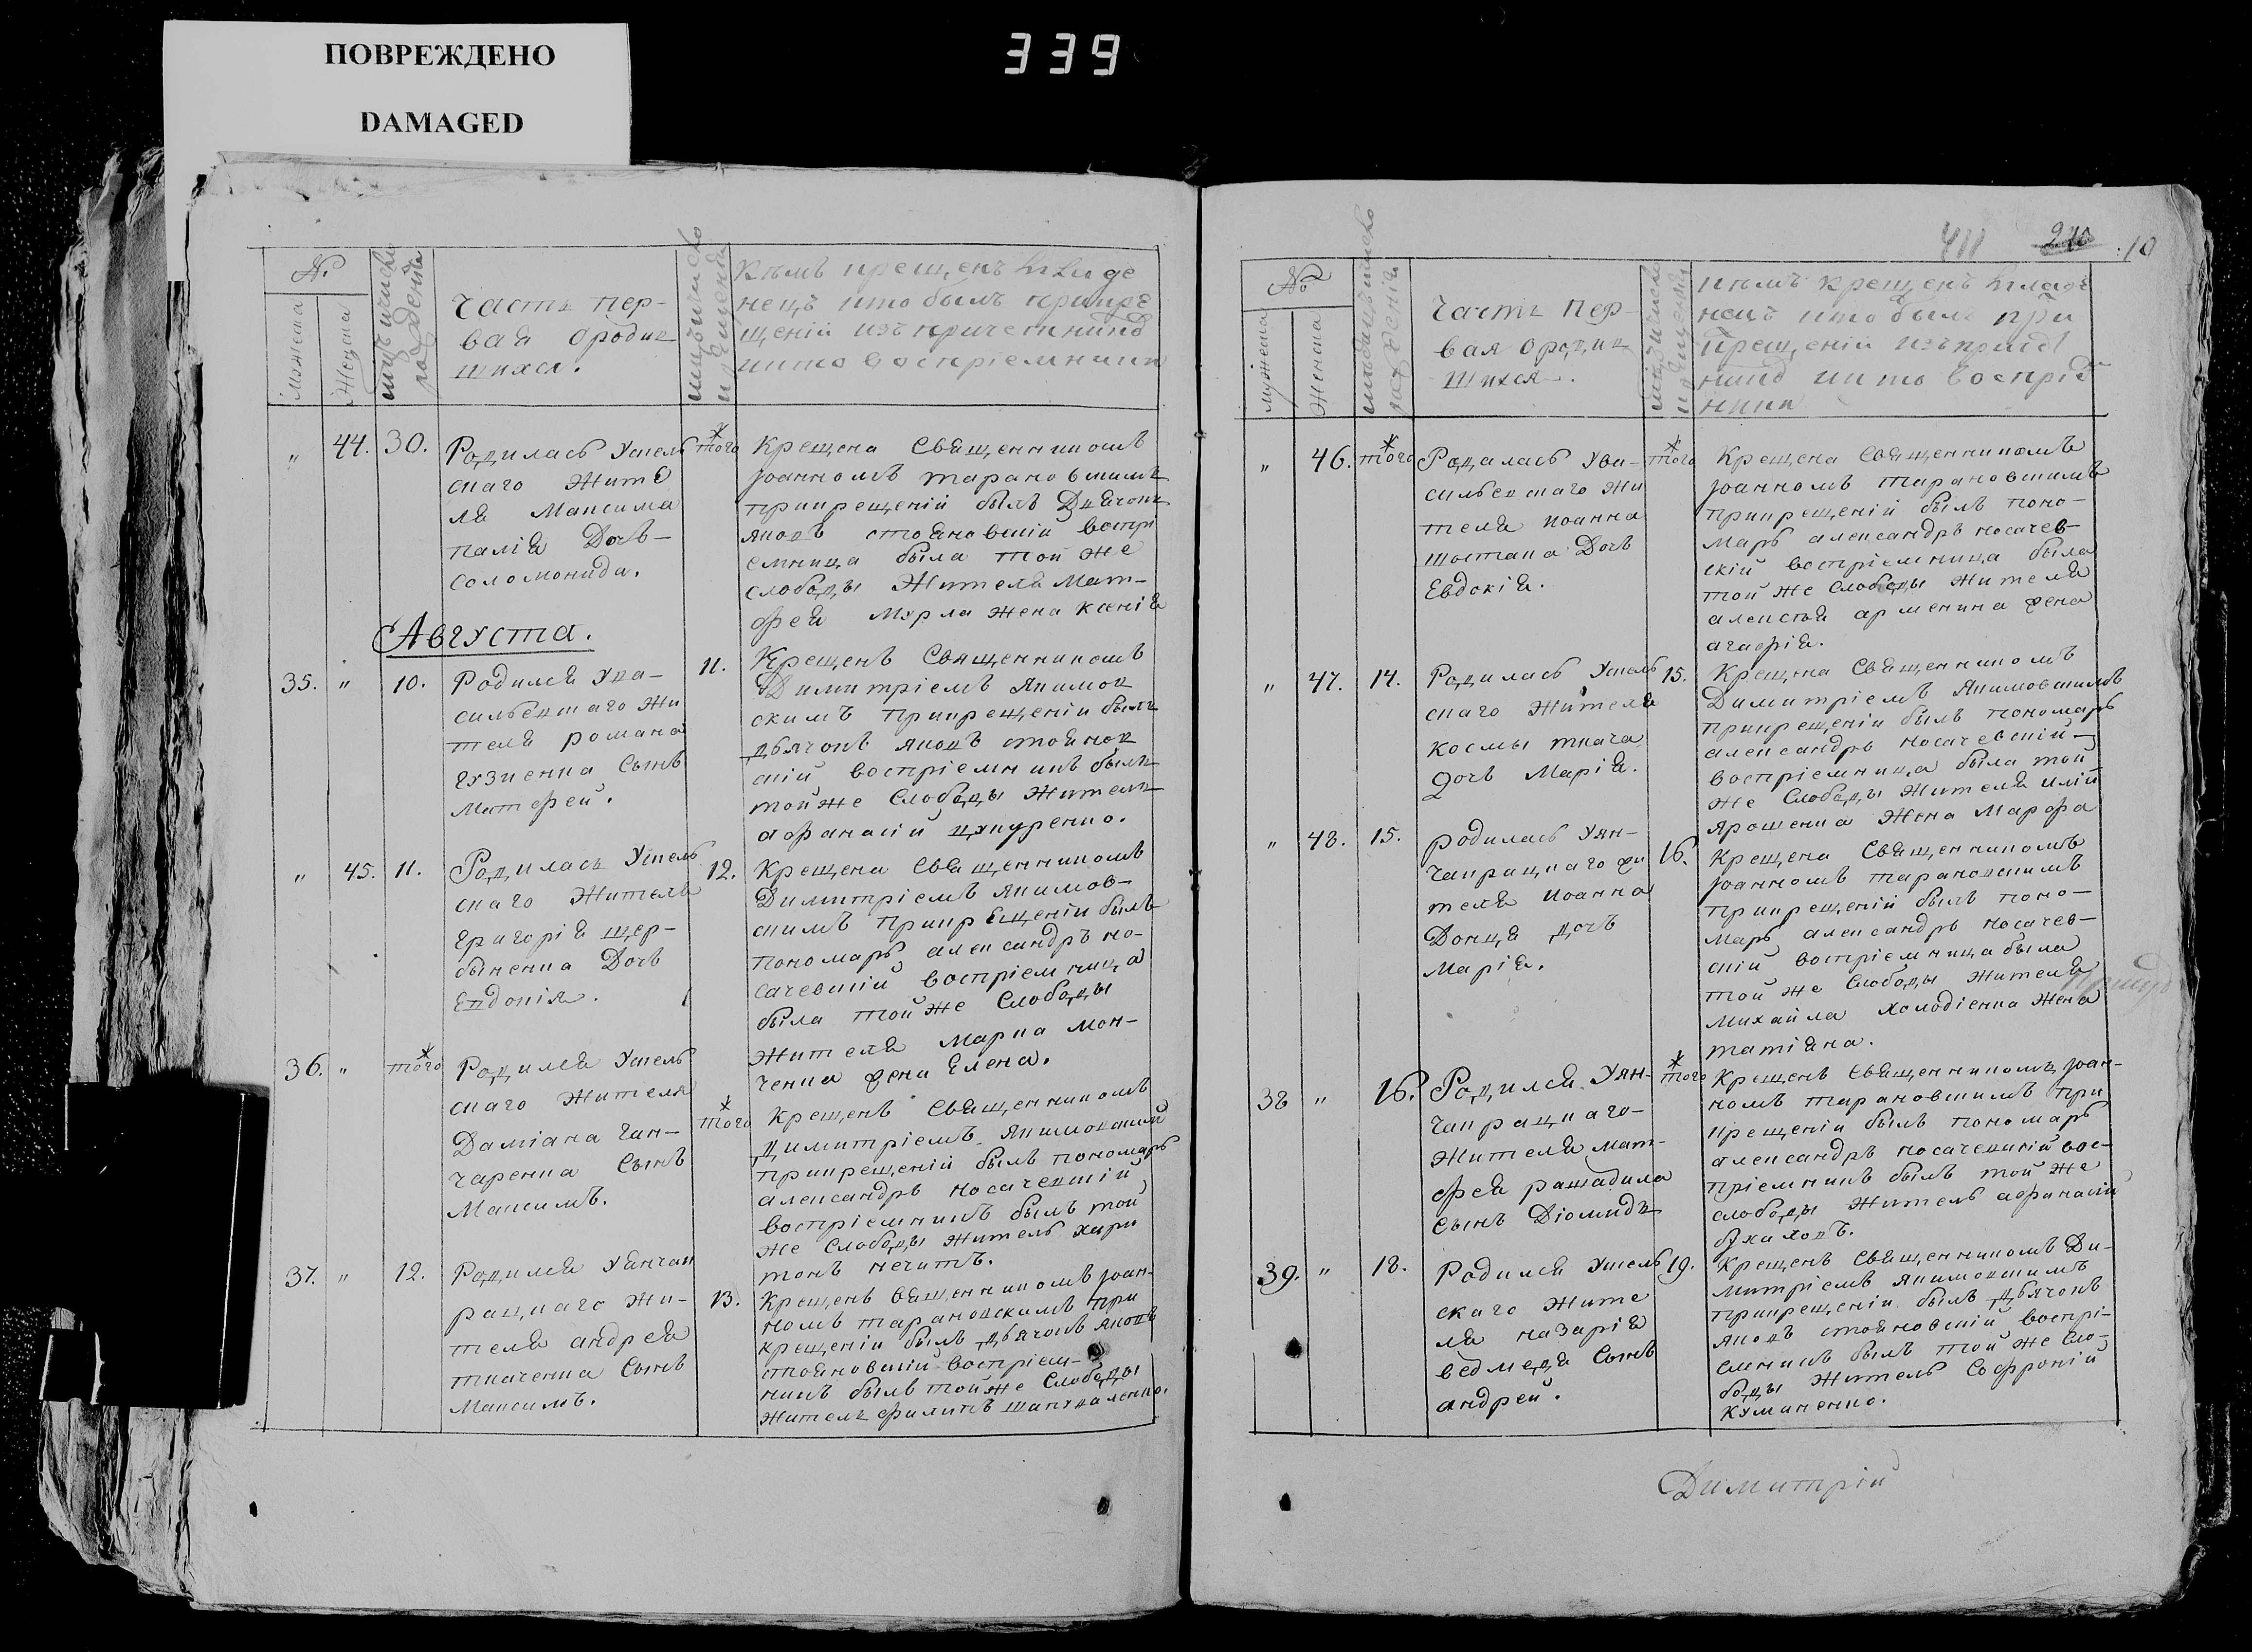 ПОВРЕЖДЕНО
DAMAGED
339
№
мужеска
Женска
Часть пер-
вая о родив
шихся.
Кѣмъ крещенъ Младе
нецъ кто былъ прикре
щеніи изъ причетниковъ
икто воспріемники
" 44. 30.
Родилась Укель
скаго Жите
ля Максима
палія Дочь-
соломонида.
того
Крещена Священникомъ
Іоанномъ тарановскимъ
прикрещеній былъ Дьячокъ
яковъ стояновскій воспрі
емница была той же
слободы Жителя Мат-
фея Мурла жена Ксенія
Августа.
35. " 10.
Родился Ува-
сильевскаго Жи
теля романа
гузненка Сынъ
Матфей.
11.
Крещенъ Священникомъ
Димитріемъ Якимов
скимъ прикрещеніи былъ
дьячокъ яковъ стоянов
скій воспріемникъ былъ
тойже Слободы Житель
афанасій цункуренко.
" 45. 11.
Родилась Укель
скаго Жителя
Григорія щер-
быненка Дочь
Евдокія.
12.
Крещена Священникомъ
Димитріемъ Якимов-
скимъ прикрещеніи былъ
пономарь александръ но-
сачевскій воспріемница
была той же Слободы
Жителя Марка мон-
ченка жена Елена.
36. " того
Родился Укель
скаго Жителя
Даміана ган-
чаренка Сынъ
Максимъ.
того
Крещенъ Священникомъ
Димитріемъ Якимовскимъ
прикрещеній былъ пономарь
александръ носачевскій
воспріемникъ былъ той
же Слободы Житель хари
тонъ нечитъ.
37. " 12.
Родился Уянчак
рацкаго Жи-
теля андрея
ткаченка Сынъ
Максимъ.
13.
Крещенъ Священникомъ Іоан-
номъ тарановскимъ при
крещеніи былъ дьячокъ яковъ
стояновскій воспріем-
никъ былъ тойже Слободы
Житель филипъ шапуваленко.
411 210 10
№
мужеска
Женска
Часть пер-
вая о родив
шихся.
кѣмъ крещенъ младе
нецъ кто былъ при
крещеній изъ причет
никовъ икто воспріе
ники
" 46. того
Родилась Ува-
сильевскаго Жи
теля иоанна
шостака Дочь
Евдокія.
того
Крещена Священникомъ
Іоанномъ тарановскимъ
прикрещеній былъ поно-
марь александръ носачев-
скій воспріемница была
той же Слободы Жителя
алексея арменина жена
агафія.
" 47. 14.
Родилась Укель
скаго Жителя
космы ткача
дочь Марія.
15.
Крещена Священникомъ
Димитріемъ Якимовскимъ
прикрещеніи былъ пономарь
александръ носачевскій
воспріемница была той
же Слободы Жителя иліи
Ярошенка Жена Марфа
" 48. 15.
родилась Уян-
чакрацкаго жи
теля иоанна
Донца дочь
Марія.
16.
Крещена Священникомъ
Іоанномъ тарановскимъ
прикрещеній былъ поно-
марь александръ носачев-
скій воспріемница была
той же Слободы Жителя
Михайла холодіенка Жена
татіана.
38 " 16.
Родился Уян-
чакрацкаго-
Жителя мат-
фея рашадила
Сынъ Діомидъ
того
Крещенъ Священникомъ Іоан-
номъ тарановскимъ при
крещеній былъ пономарь
александръ носачевскій вос-
пріемникъ былъ той же
слободы Житель афанасій
39. " 18.
Родился Укель
скаго Жите
ля назарія
ведмедя Сынъ
андрей.
19.
Крещенъ Священникомъ Ди-
митріемъ якимовскимъ
прикрещеніи былъ дьячокъ
яковъ стояновскій воспрі-
емникъ былъ той же Сло-
боды Житель Софроній
Куманенко.
Димитрій